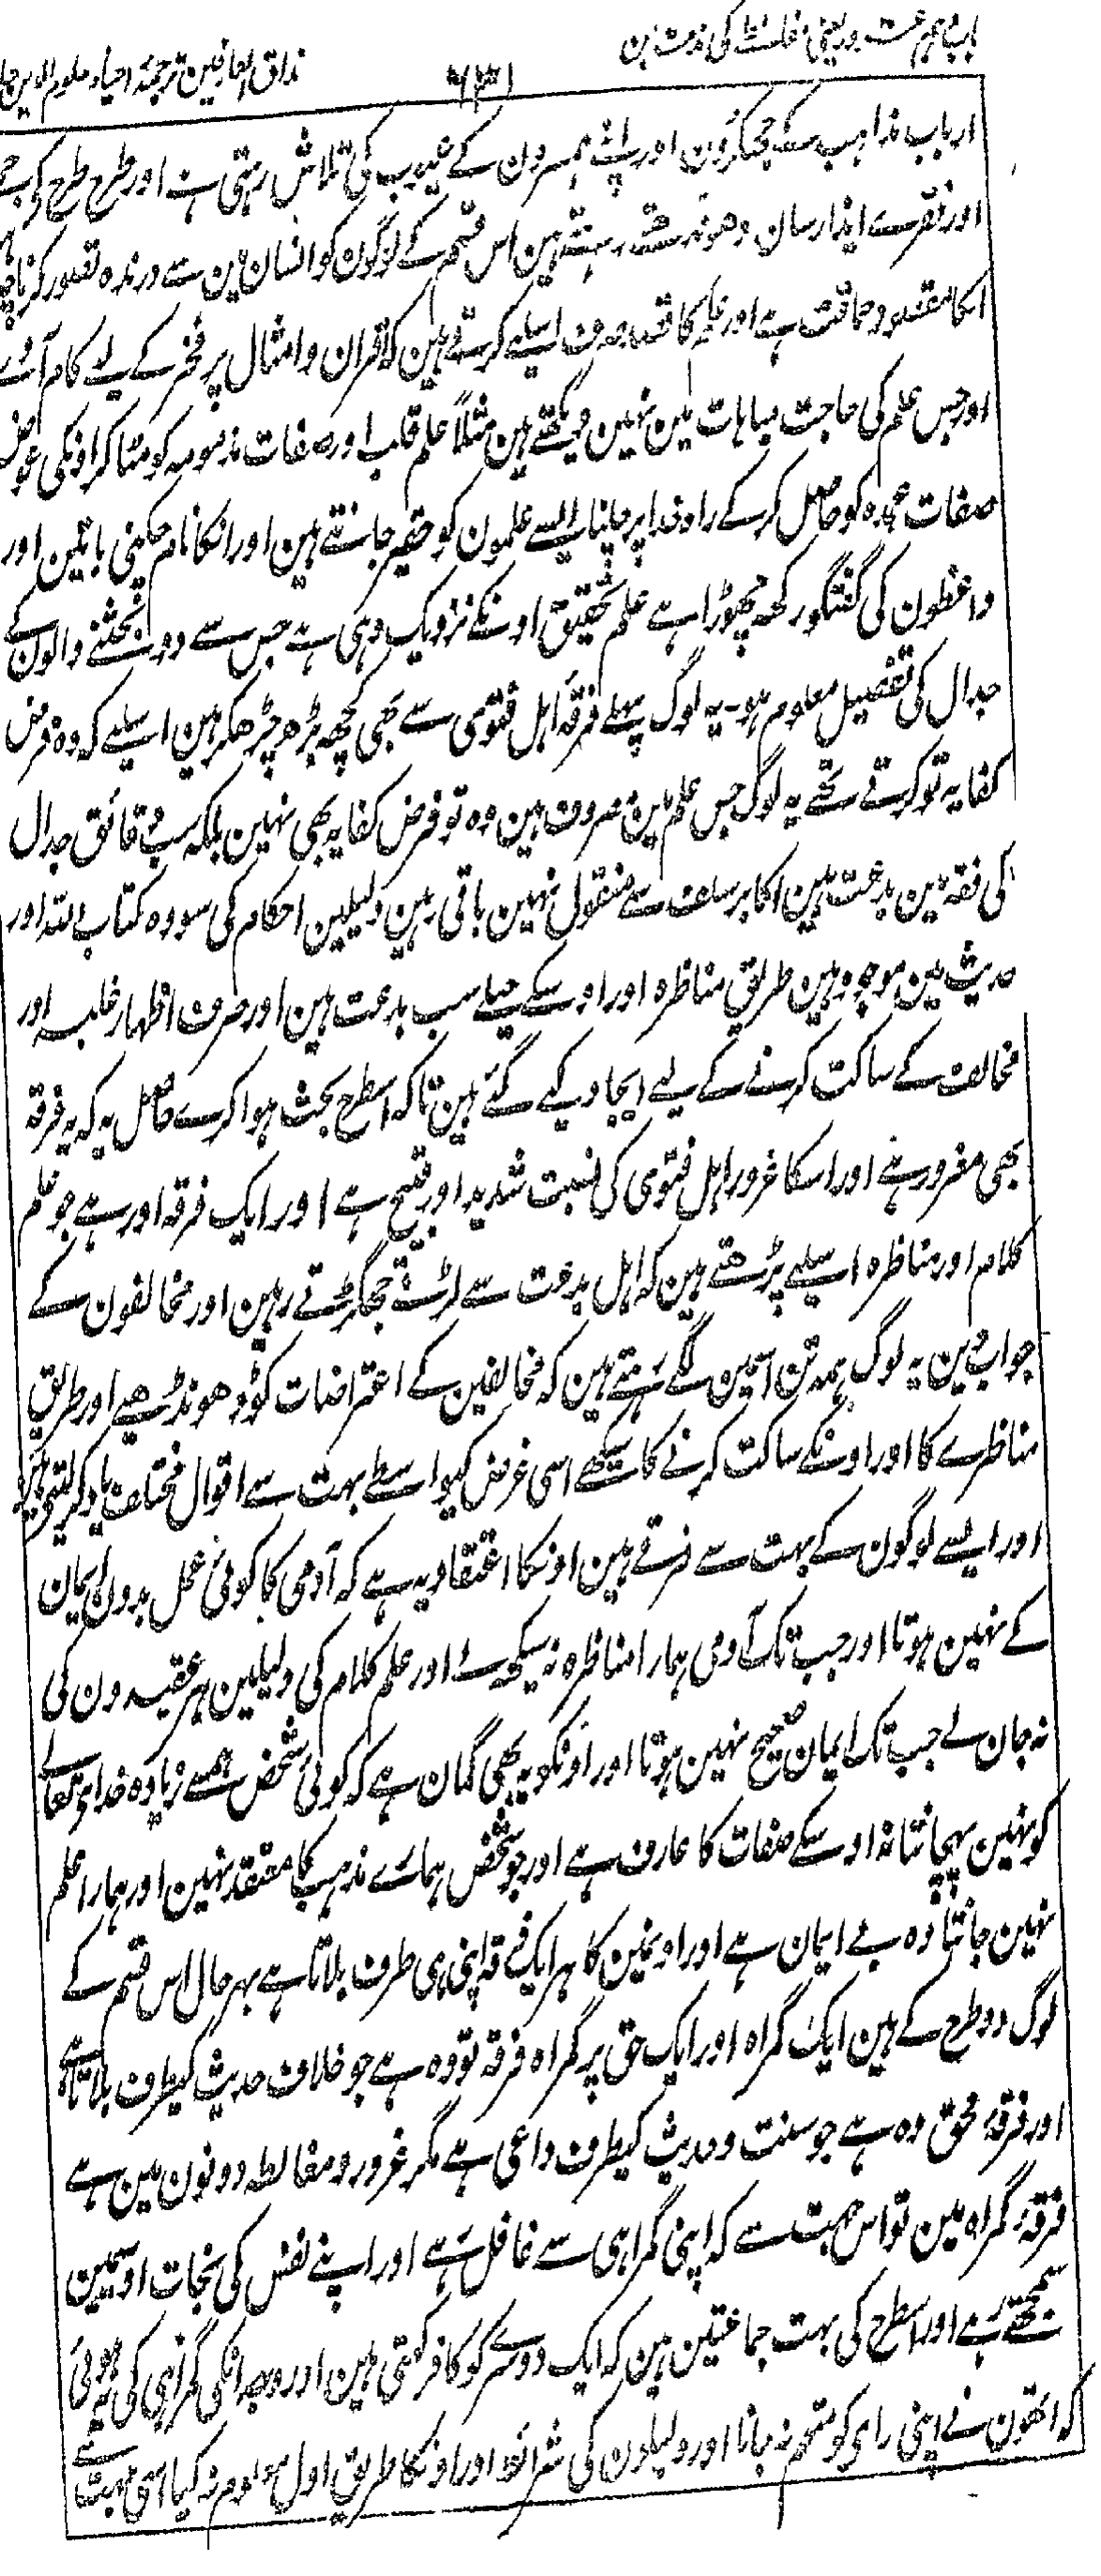 مذاق العارفین ترجمہ احیاء علوم الدین
۶۳۱
ارباب مذاہب کے جھگڑون اور اپنے ہمسرون کے عیوب کی تلاش رہتی ہے اور طرح طرح کی
اور فقرے ایذا رسان ڈھونڈھتے رہتے ہین اس قسم کے لوگون کو انسان مین سے درندہ تصور کرنا
انکا مقصود حماقت ہے اور علم کا قصد صرف اسلیے کرتے ہین کہ اقران و امثال پر فخر کے لیے کام آئے
اور جس علم کی حاجت مباہات مین نہین دیکھتے ہین مثلاً علم قلب اور صفات مذمومہ کو مٹا کر اونکی عوض
صفات محمودہ کو حاصل کرکے راہ خدا پر چلنا ایسے علمون کو حقیر جانتے ہین اور انکا نام چکنی باتین اور
واعظون کی گفتگو رکھ چھوڑا ہے علم تحقیق اونکے نزدیک وہی ہے جس سے دو بحثنے والون کے
جدال کی تفصیل معلوم ہو۔ یہ لوگ پہلے فرقہ اہل فتوی سے بھی کچھ بڑھ چڑھکر ہین اسلیے کہ وہ فرض
کفایہ تو کرتے تھے یہ لوگ جس علم مین مصروف ہین وہ تو فرض کفایہ بھی نہین بلکہ سب دقائق جدال
کی فقہ مین بدعت ہین اکابر سلف سے منقول نہین باقی رہین دلیلین احکام کی سو وہ کتاب اللہ اور
حدیث مین موجود ہین طریق مناظرہ اور اوسکے حیلے سب بدعت ہین اور صرف اظہار غلبہ اور
مخالف کے ساکت کرنے کے لیے ایجاد کیے گئے ہین تاکہ اسطرح بحث ہوا کرے حاصل یہ کہ یہ فرقہ
بھی مغرور ہے اور اسکا غرور اہل فتوی کی نسبت شدید اور قبیح ہے اور ایک فرقہ اور ہے جو علم
کلام اور مناظرہ اسلیے پڑھتے ہین کہ اہل بدعت سے لڑتے جھگڑتے رہین اور مخالفون کے
جواب دین یہ لوگ ہمہ تن اسمین لگے رہتے ہین کہ مخالفین کے اعتراضات کو ڈھونڈھیے اور طریق
مناظرے کا اور اونکے ساکت کرنے کا سیکھے اسی غرض کیواسطے بہت سے اقوال مختلف یاد کرلیتے ہین
اور ایسے لوگون کے بہت سے فرقے ہین اونکا اعتقاد یہ ہے کہ آدمی کا کوئی عمل بدون ایمان
کے نہین ہوتا اور جب تک آدمی ہمارا مناظرہ نہ سیکھے اور علم کلام کی دلیلین ہر عقیدون کی
نہ جان لے جب تک ایمان صحیح نہین ہوتا اور اونکو یہ بھی گمان ہے کہ کوئی شخص ہمسے زیادہ خدای تعالے
کو نہین پہچانتا نہ اوسکے صفات کا عارف ہے اور جو شخص ہمارے مذہب کا معتقد نہین اور ہمارا علم
نہین جانتا وہ بے ایمان ہے اور اونمین کا ہر ایک فرقہ اپنی ہی طرف بلاتا ہے بہر حال اس قسم کے
لوگ دو طرح کے ہین ایک گمراہ اور ایک حق پر گمراہ فرقہ تو وہ ہے جو خلاف حدیث کیطرف بلاتا ہے
اور فرقہ محق وہ ہے جو سنت و حدیث کیطرف داعی ہے مگر غرور و مغالطہ دونون مین ہے
فرقہ گمراہ مین تو اس جہت سے کہ اپنی گمراہی سے غافل ہے اور اپنے نفس کی نجات اوسیمین
سمجھتے ہے اور اسطرح کی بہت جماعتین ہین کہ ایک دوسرے کو کافر کہتی ہین اور وجہ انکی گمراہی کی یہ ہوئی
کہ انھون نے اپنی رای کو متہم نہ جانا اور دلیلون کی شرائط اور اونکا طریق اول معلوم نہ کیا اسی جہت سے